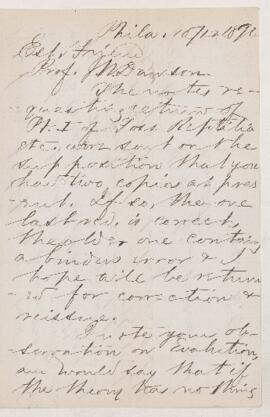 Phila. 10/12 1890
Est. Friend
Prof. J W Dawson.
The notes re-
questing return of
Pt. I of Foss. Reptilia
etc. were sent on the
supposition that you
had two copies at pres-
ent. If so, the one
last rec'd. is correct,
the older one contains
a binders error & I
hope will be return-
ed for correction &
reissue.
I note your ob-
servation on Evolution,
and would say that if
the theory has nothing